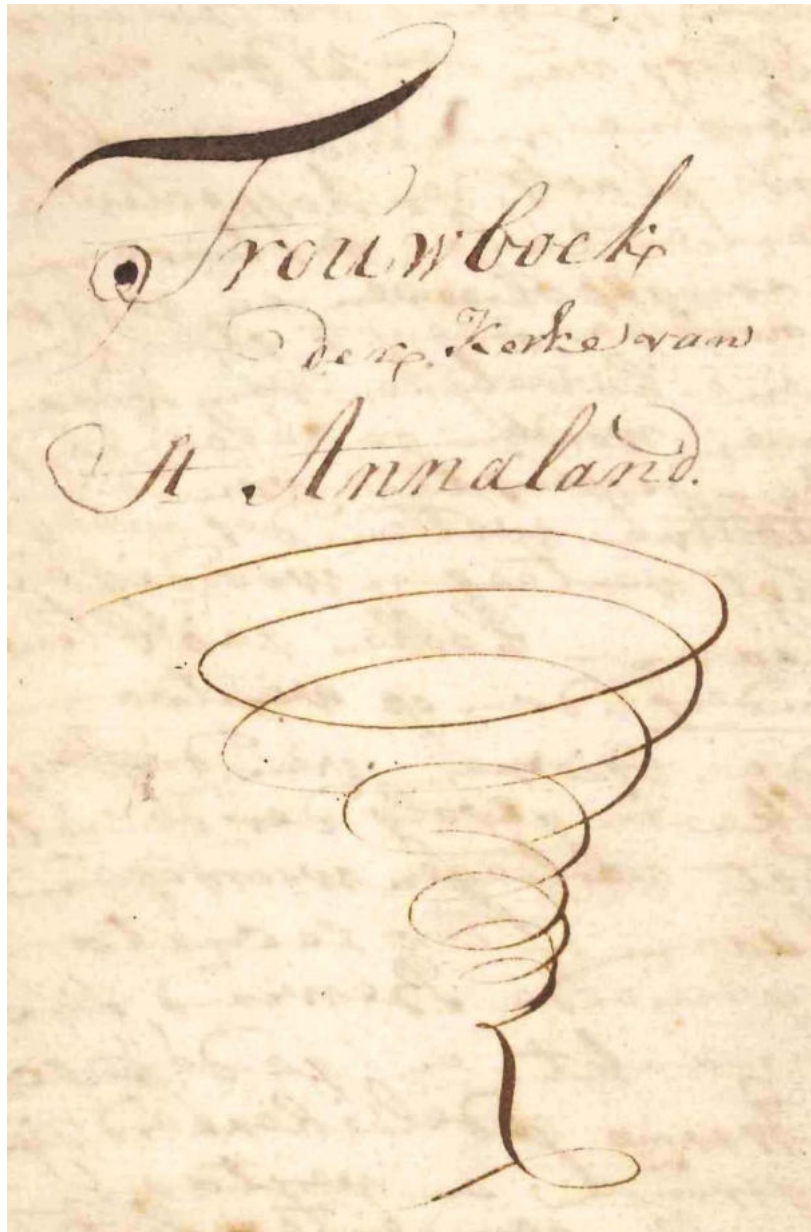 Trouwboek
der Kerke van
St Annaland.